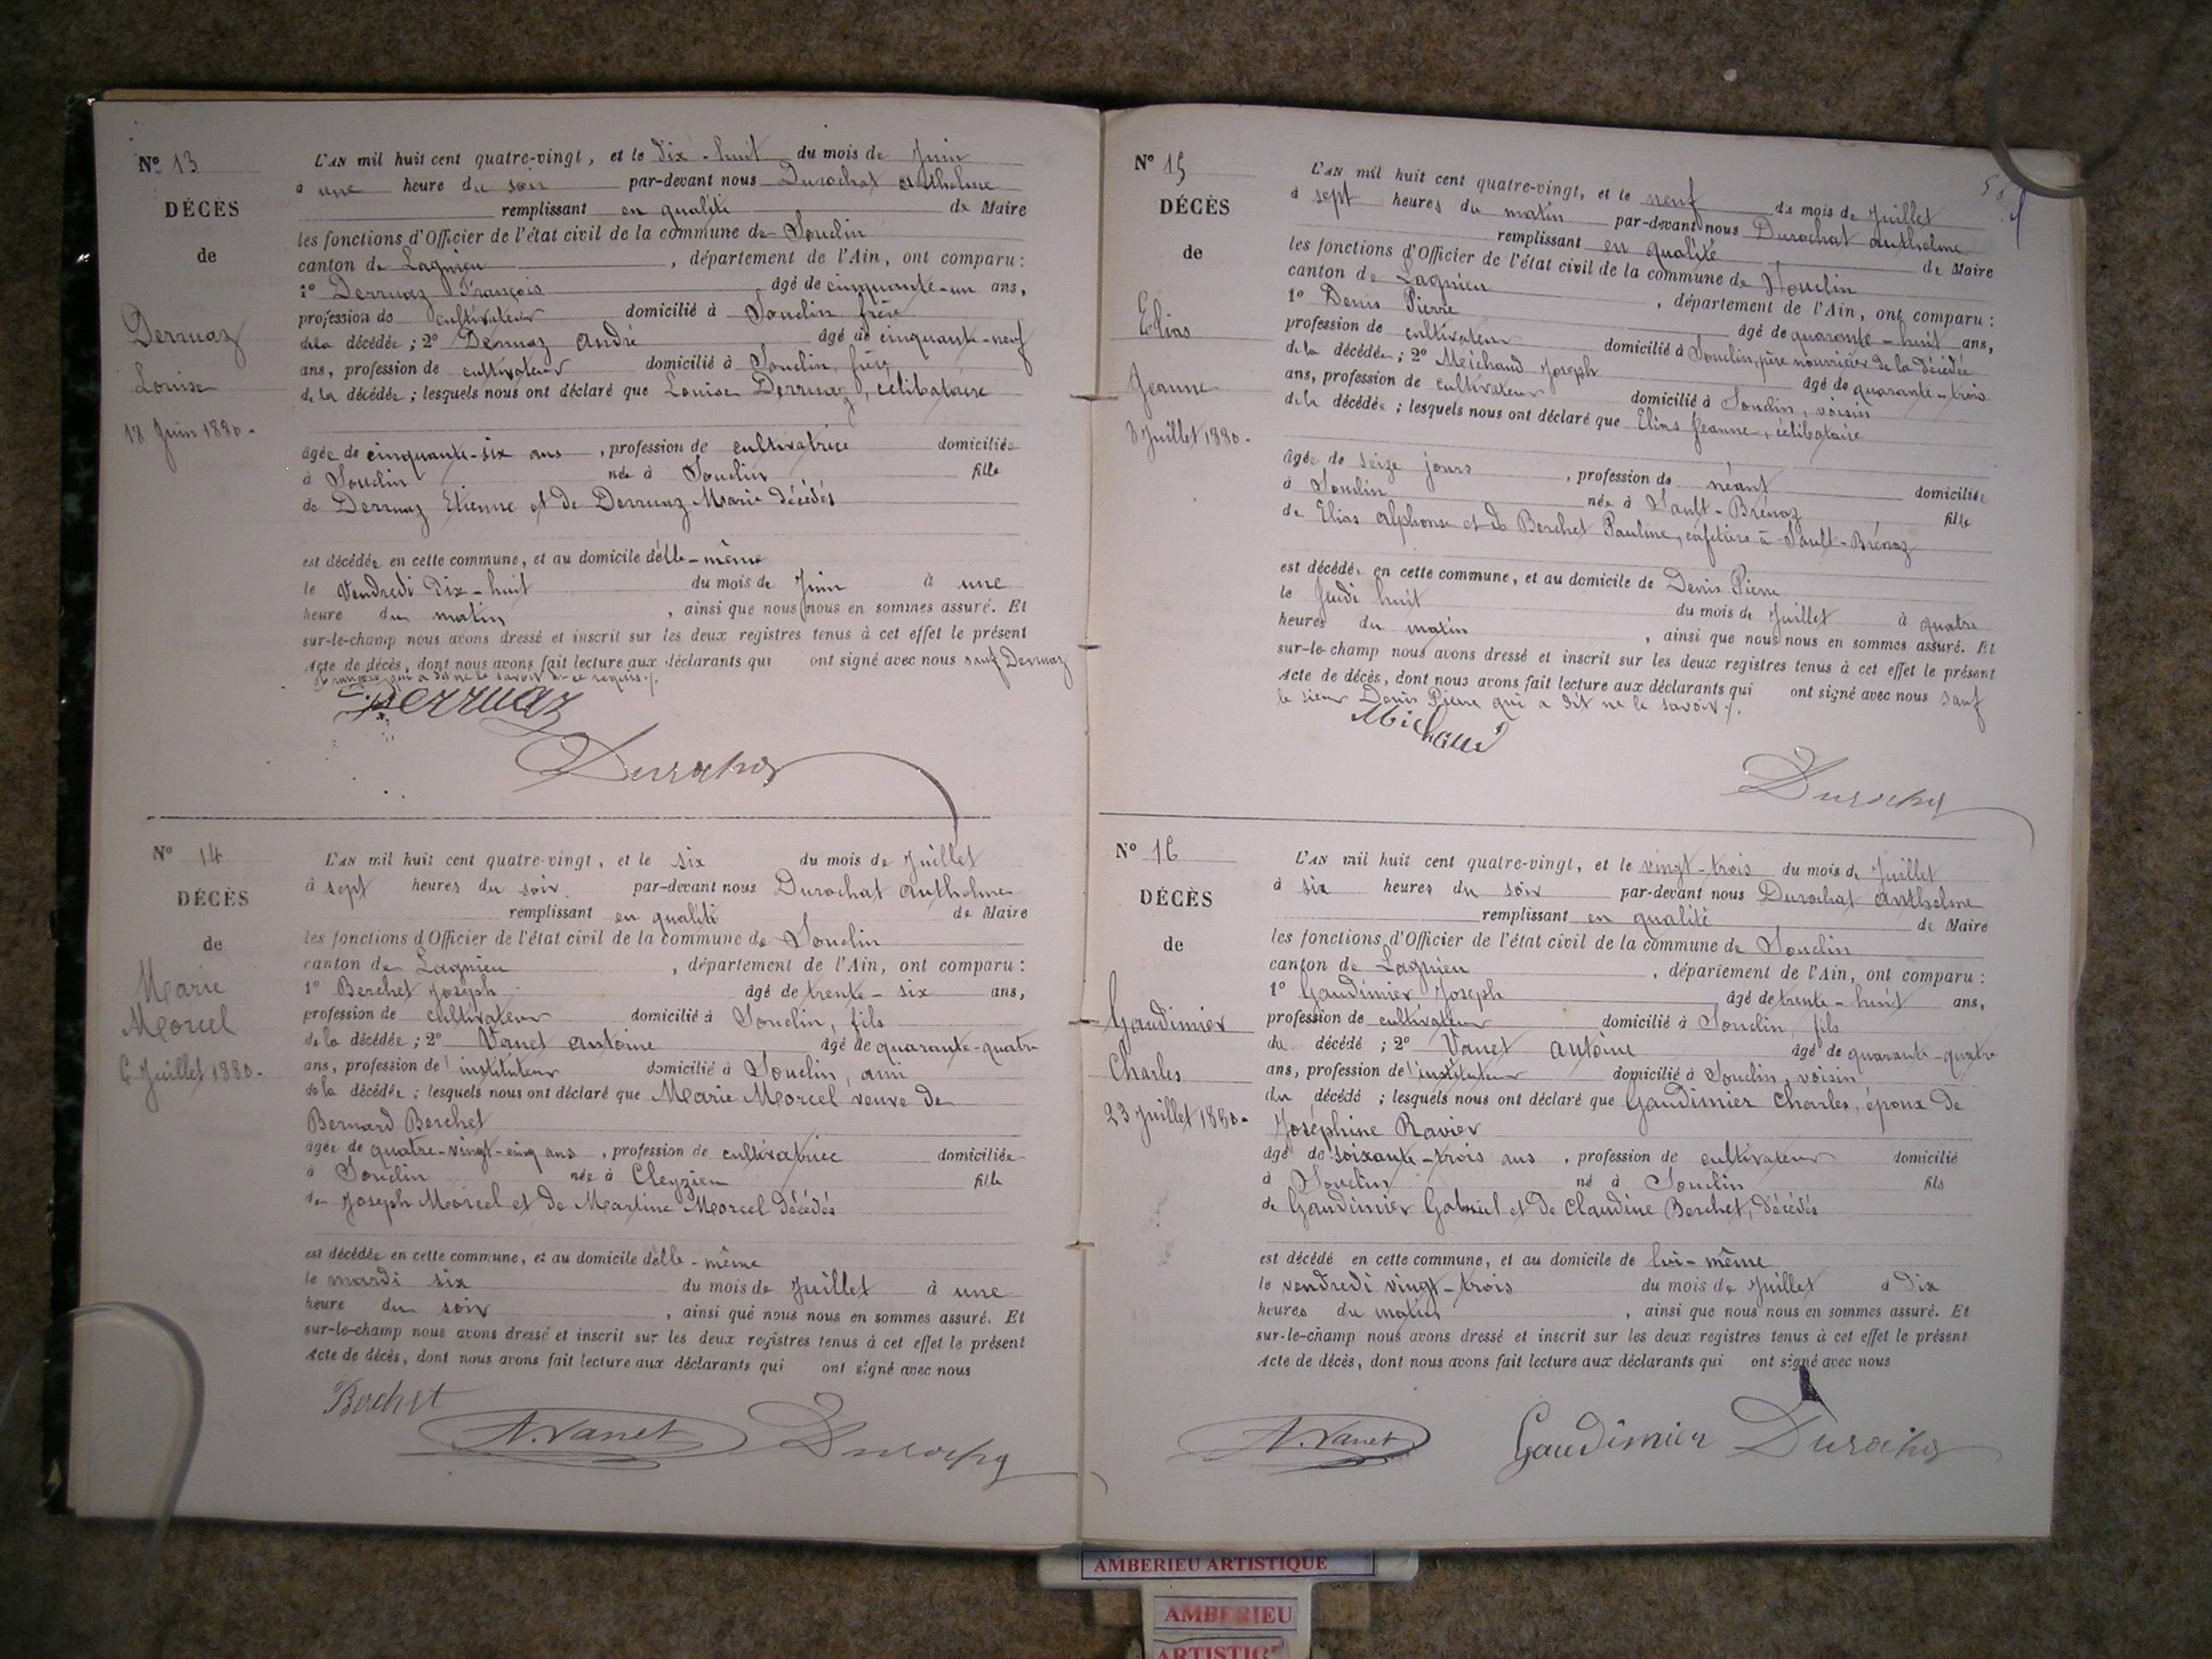 Nº 13
DÉCÈS
de
Derruaz
Louise
18 Juin 1880.
L'AN mil huit cent quatre-vingt, et le dix-huit du mois de Juin
à une heure du soir par-devant nous Durochat Anthelme
remplissant en qualité de Maire
les fonctions d'Officier de l'état civil de la commune de Souclin
canton de Lagnieu, département de l'Ain, ont comparu :
1º Derruaz François âgé de cinquante-un ans,
profession de cultivateur domicilié à Souclin frère
de la décédée ; 2º Derruaz André âgé de cinquante-neuf
ans, profession de cultivateur domicilié à Souclin, frère
de la décédée ; lesquels nous ont déclaré que Louise Derruaz, célibataire
âgée de cinquante-six ans, profession de cultivatrice domiciliée
à Souclin née à Souclin fille
de Derruaz Etienne et de Derruaz Marie décédés
est décédée en cette commune, et au domicile d'elle-même
le Vendredi dix-huit du mois de Juin à une
heure du matin, ainsi que nous nous en sommes assuré. Et
sur-le-champ nous avons dressé et inscrit sur les deux registres tenus à cet effet le présent
Acte de décès, dont nous avons fait lecture aux déclarants qui ont signé avec nous sauf Derruaz
François qui a dit ne le savoir de ce requis ./.
Derruaz
Durochat
Nº 14
DÉCÈS
de
Marie
Morcel
6 Juillet 1880.
L'AN mil huit cent quatre-vingt, et le six du mois de Juillet
à sept heures du soir par-devant nous Durochat Anthelme
remplissant en qualité de Maire
les fonctions d'Officier de l'état civil de la commune de Souclin
canton de Lagnieu, département de l'Ain, ont comparu :
1º Berchet Joseph âgé de trente-six ans,
profession de cultivateur domicilié à Souclin, fils
de la décédée ; 2º Vanet Antoine âgé de quarante-quatre
ans, profession de l'instituteur domicilié à Souclin, ami
de la décédée ; lesquels nous ont déclaré que Marie Morcel veuve de
Bernard Berchet
âgée de quatre-vingt-cinq ans, profession de cultivatrice domiciliée
à Souclin née à Cleyzieu fille
de Joseph Morcel et de Martine Morcel décédés
est décédée en cette commune, et au domicile d'elle-même
le mardi six du mois de Juillet à une
heure du soir, ainsi que nous nous en sommes assuré. Et
sur-le-champ nous avons dressé et inscrit sur les deux registres tenus à cet effet le présent
Acte de décès, dont nous avons fait lecture aux déclarants qui ont signé avec nous
Berchet
A. Vanet
Durochat
Nº 15
DÉCÈS
de
Elias
Jeanne
8 Juillet 1880.
L'AN mil huit cent quatre-vingt, et le neuf du mois de Juillet
à sept heures du matin par-devant nous Durochat Anthelme
remplissant en qualité de Maire
les fonctions d'Officier de l'état civil de la commune de Souclin
canton de Lagnieu, département de l'Ain, ont comparu :
1º Denis Pierre âgé de quarante-huit ans,
profession de cultivateur domicilié à Souclin, père nourricier de la décédée
de la décédée ; 2º Michaud Joseph âgé de quarante-trois
ans, profession de cultivateur domicilié à Souclin, voisin
de la décédée ; lesquels nous ont déclaré que Elias Jeanne, célibataire
âgée de seize jours, profession de néant domiciliée
à Souclin née à Sault-Brénaz fille
de Elias Alphonse et de Berchet Pauline, cafetiers à Sault-Brénaz
est décédée en cette commune, et au domicile de Denis Pierre
le Jeudi huit du mois de Juillet à quatre
heures du matin, ainsi que nous nous en sommes assuré. Et
sur-le-champ nous avons dressé et inscrit sur les deux registres tenus à cet effet le présent
Acte de décès, dont nous avons fait lecture aux déclarants qui ont signé avec nous sauf
le sieur Denis Pierre qui a dit ne le savoir ./.
Michaud
Durochat
Nº 16
DÉCÈS
de
Gaudimier
Charles
23 Juillet 1880.
L'AN mil huit cent quatre-vingt, et le vingt-trois du mois de Juillet
à six heures du soir par-devant nous Durochat Anthelme
remplissant en qualité de Maire
les fonctions d'Officier de l'état civil de la commune de Souclin
canton de Lagnieu, département de l'Ain, ont comparu :
1º Gaudimier Joseph âgé de trente-huit ans,
profession de cultivateur domicilié à Souclin, fils
du décédé ; 2º Vanet Antoine âgé de quarante-quatre
ans, profession de l'instituteur domicilié à Souclin, voisin
du décédé ; lesquels nous ont déclaré que Gaudimier Charles, époux de
Joséphine Ravier
âgé de soixante-trois ans, profession de cultivateur domicilié
à Souclin né à Souclin fils
de Gaudimier Gabriel et de Claudine Berchet, décédés
est décédé en cette commune, et au domicile de lui-même
le vendredi vingt-trois du mois de Juillet à dix
heures du matin, ainsi que nous nous en sommes assuré. Et
sur-le-champ nous avons dressé et inscrit sur les deux registres tenus à cet effet le présent
Acte de décès, dont nous avons fait lecture aux déclarants qui ont signé avec nous
A. Vanet
Gaudimier
Durochat
AMBERIEU ARTISTIQUE
AMBERIEU
ARTISTIQ